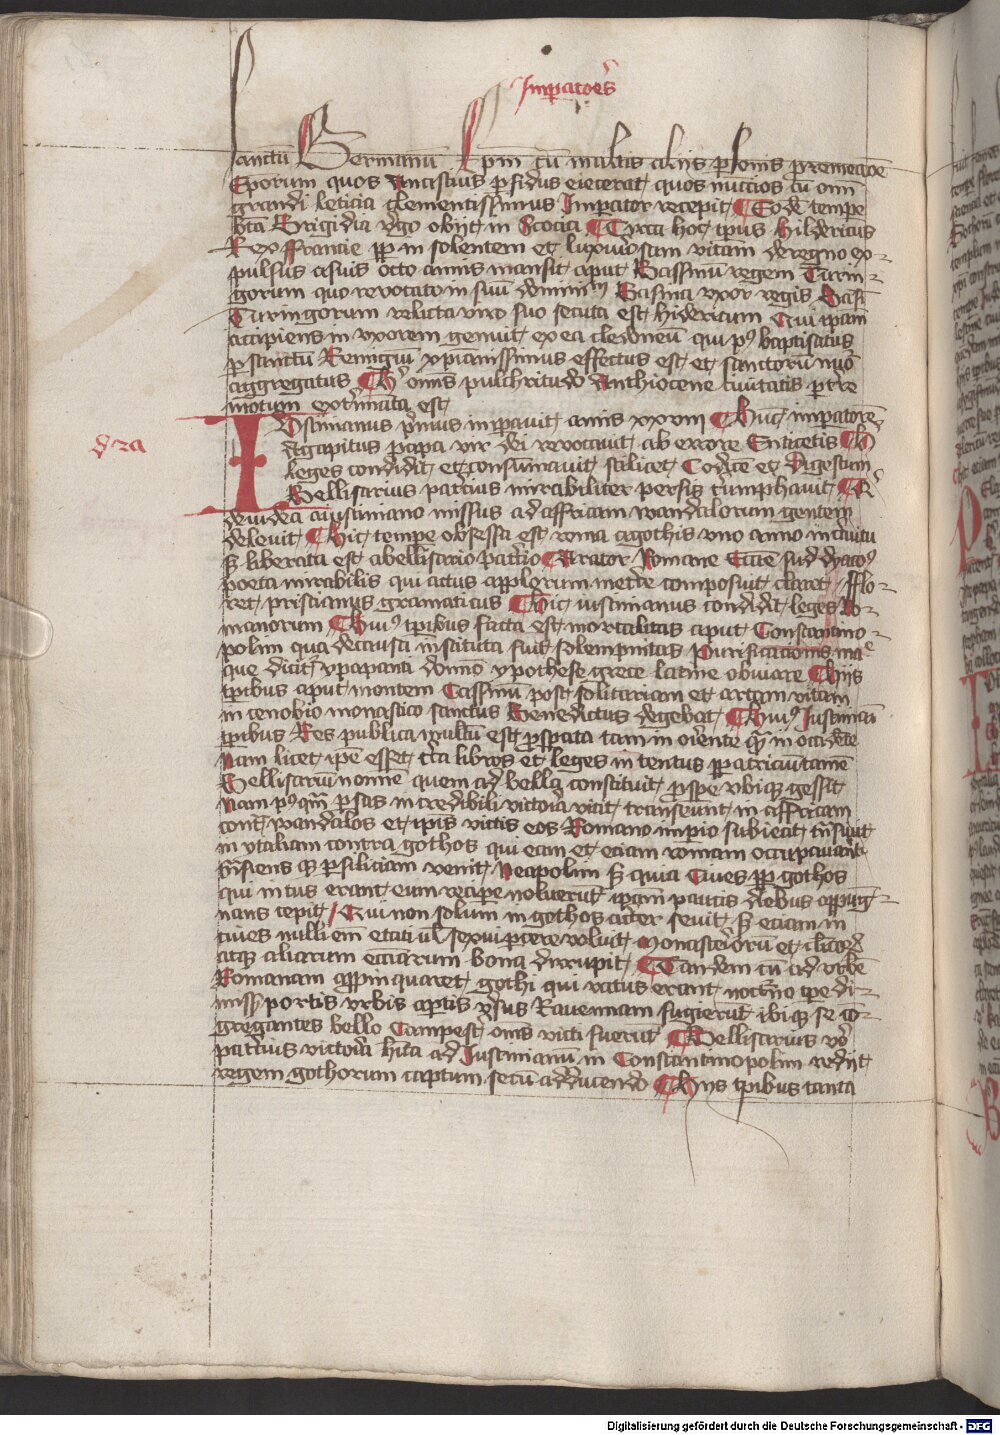 Imperatores
sanctū Germanū Epm̄ cū multis alijs ꝑsonis
Eporum quos Anastius ꝑfidus eiecerat quos nuccios cū om̄i
grandi leticia clementissimus Imꝑator recepit Eodē tempe
bt̄a Brigidia v̓go obijt in Scocia Circa hoc tp̄us hildericus
Rex ffrancie ꝓpt̓ insolentem et luxuriosam vitam de regno ex-
pulsus a suis octo annis mansit aput Bassinū regem Turin-
gorum quo reuocato in suū dominiū Basina vxor regis Basī
Turingorum relicta viro suo secuta est hidericum Qui ipam
accipiens in vxorem genuit ex ea clodoneū qui pꝰ baptisatus
ꝑ sanctū Remigiū xp̄ianissimus effectus est et sanctorū nūo
aggregatus omīs pulchritudo Anthiocene ciuitatis ꝑ t̓re
motum ext̓minata est
Iustinianus p̓mus inꝑauit annis xxxviij Hunc imꝑatorē
dr̄a
Agapitus papa vir dei reuocauit ab errore Euticetis
leges condidit et consumauit scilicet Codicē et Digestum
Bellisarius patricius mirabiliter persis triumphauit
deinde a iustiniano missus ad affricam wandalorum gentem
deleuit Hic tempe obsessa est roma a gothis vno anno
sꝫ liberata est a bellisario pat̓cio Arator Romane Ecc̄e subdyaconꝰ
poeta mirabilis qui actus aplorum metr̄e composuit claret fflo-
ret priscianus gramaticus Hic iustinianus condidit leges Ro-
manorum Huiꝰ tp̄ibus facta est mortalitas aput Constantino-
polim qua de causa instituta fuit solempnitas Purificacionis ma͞e
que dicit̓ ypapanti domīo ypothese grece latine obuiare Hijs
tp̄ibus aput montem Cassinū post solitariam et artam vitam
in cenobio monastico sanctus Benedictus degebat Huiꝰ Iustiniāi
tp̄ibus Res publica multū est ꝓsperata tam in oriente qͣꝫ in occidēte
Nam licet ipē esset circa libros et leges intentus ꝑ patriciū tamē
Bellisariū nomīe quem ad bella constituit ꝓspe vbiqꝫ gessit
Nam pꝰqͣm ꝑsas incredibili victoria vicit transeunt in affricam
contͣ wandalos et ipīs victis eos Romano imꝑio subiecit tn̄siuit
in ytaliam contra gothos qui eam et eciam romam occupauerāt
tn̄siens qꝫ ꝑ siliciam venit Neapolim sꝫ quia Ciues ꝓpt̓ gothos
qui intus erant eum reciꝑe noluerūt ipam paucis diebus oppung-
nans cepit Qui non solum in gothos acriter seuit sꝫ eciam in
ciues nulli em̄ etati ul̄ sexui ꝑcere voluit Monasteriorū et
atqꝫ aliarum ecc̄iarum bona diripuit Tandem cū ad vrbē
Romanam appinquaret gothi qui varus erant nocturno tp̄e di-
missꝫ portis vrbis aꝑtis v̓sus Rauennam fugierūt ibiqꝫ se cō-
gregantes bello Campestͥ om̄s victi fuerūt Bellisarius v̓o
patricius victoria hīta ad Iustinianū in Constantinopolim redijt
regem gothorum captum secū adducendo Hijs tp̄ibus tanta
Digitalisierung gefördert durch die Deutsche Forschungsgemeinschaft - DFG